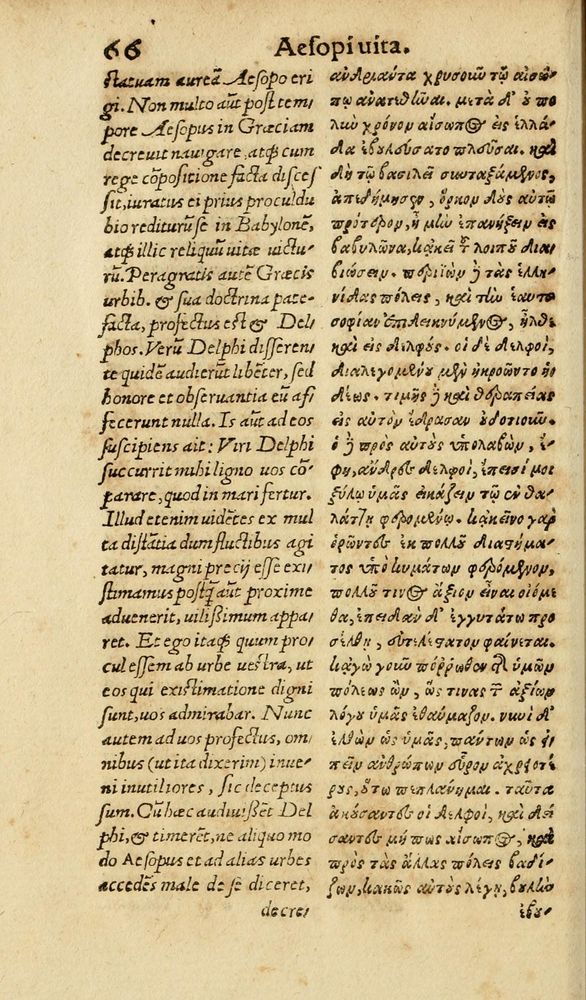 66
Aesopi vita.
statuam aureã Aesopo eri
gi. Non multo aũt post tem/
pore Aesopus in Græciam
decreuit nauigare, atq́; cum
rege cõpositione facta disces
sit, iuratus ei prius proculdu
bio rediturũ se in Babylonẽ,
atq́; illic reliquũ uitæ uictu/
rũ. Peragratis autẽ Græcis
urbib. & sua doctrina pate-
facta, profectus est & Del/
phos. Verũ Delphi disseren/
te quidẽ audierũt libẽter, sed
honore et obseruantia eũ afi
fecerunt nulla. Is aũt ad eos
suscipiens ait: Viri Delphi
succurrit mihi ligno uos cõ/
parare, quod in mari fertur.
Illud etenim uidẽtes ex mul
ta distãtia dum fluctibus agi
tatur, magni precij esse exi/
stimamus postq̃ aũt proxime
aduenerit, uilissimum appa/
ret. Et ego itaq́; quum pro/
cul essem ab urbe uestra, ut
eos qui existimatione digni
sunt, uos admirabar. Nunc
autem ad uos profectus, om/
nibus (ut ita dixerim) inue/
ni inutiliores, sic deceptus
sum. Cũ hæc audiuißẽt Del
phi, & timerẽt, ne aliquo mo
do Aesopus et ad alias urbes
accedẽs male de se diceret,
decre/
ανδριάντα χρυσοῦν τῷ αἰσώ-
πῳ ἀνατεθῆναι. μετὰ δ' οὐ πο
λιὼ χρόνον αἴσωπος εἰς ἑλλά-
δα ἐβουλεύσατο πλεῦσαι. καὶ
δὴ τῷ βασιλεῖ συνταξάμενος,
ἀπεδήμησεν, ὅρκον δοὺς αὐτῷ
πρότερον, ἦ μὴν ἐπανήξειν εἰς
βαβυλῶνα, κἀκεῖ τὸν λοιπὸν δια
βιώσειν. περιϊὼν δὲ τὰς ἑλλη-
νίδας πόλεις, καὶ τὴν ἑαυτοῦ
σοφίαν ἐπιδεικνύμενος, ἦλθε
καὶ εἰς δελφούς. οἱ δὲ δελφοὶ,
διαλεγομένου μὲν ἠκροῶντο ἡ
δέως. τιμῆς δὲ καὶ θεραπείας
εἰς αὐτὸν ἔδρασαν οὐδοτιοῦν.
ὁ δὲ πρὸς αὐτοὺς ὑπολαβὼν, ἔ-
φη, ἄνδρες δελφοὶ, ἔπεισί μοι
ξύλῳ ὑμᾶς εἰκάζειν τῷ ἐν θα-
λάτῃ φερομένῳ. κἀκεῖνο γὰρ
ὁρῶντες ἐκ πολλοῦ διαστήμα-
τος ὑπὸ κυμάτων φερόμενον,
πολλοῦ τινος ἄξιον εἶναι οἰόμε
θα, ἐπειδὰν δ' ἐγγυτάτω προ
σέλθῃ, εὐτελέστατον φαίνεται.
κἀγὼ γοῦν πόρρωθεν ὑμῶν
πόλεως ὢν, ὥς τινας τῶν ἀξίων
λόγου ὑμᾶς ἐθαύμαζον. νυνὶ δ'
ἐλθὼν ὡς ὑμᾶς, πάντων ὡς εἰ
πεῖν ἀνθρώπων εὗρον ἀχρειοτέ
ρους, οὕτω πεπλάνημαι. ταῦτα
ἀκούσαντες οἱ δελφοὶ, καὶ δεί
σαντες μή πως αἴσωπος, καὶ
πρὸς τὰς ἄλλας πόλεις βαδί-
ζων, κακῶς αὐτοὺς λέγῃ, βουλὴν
ἐβου-